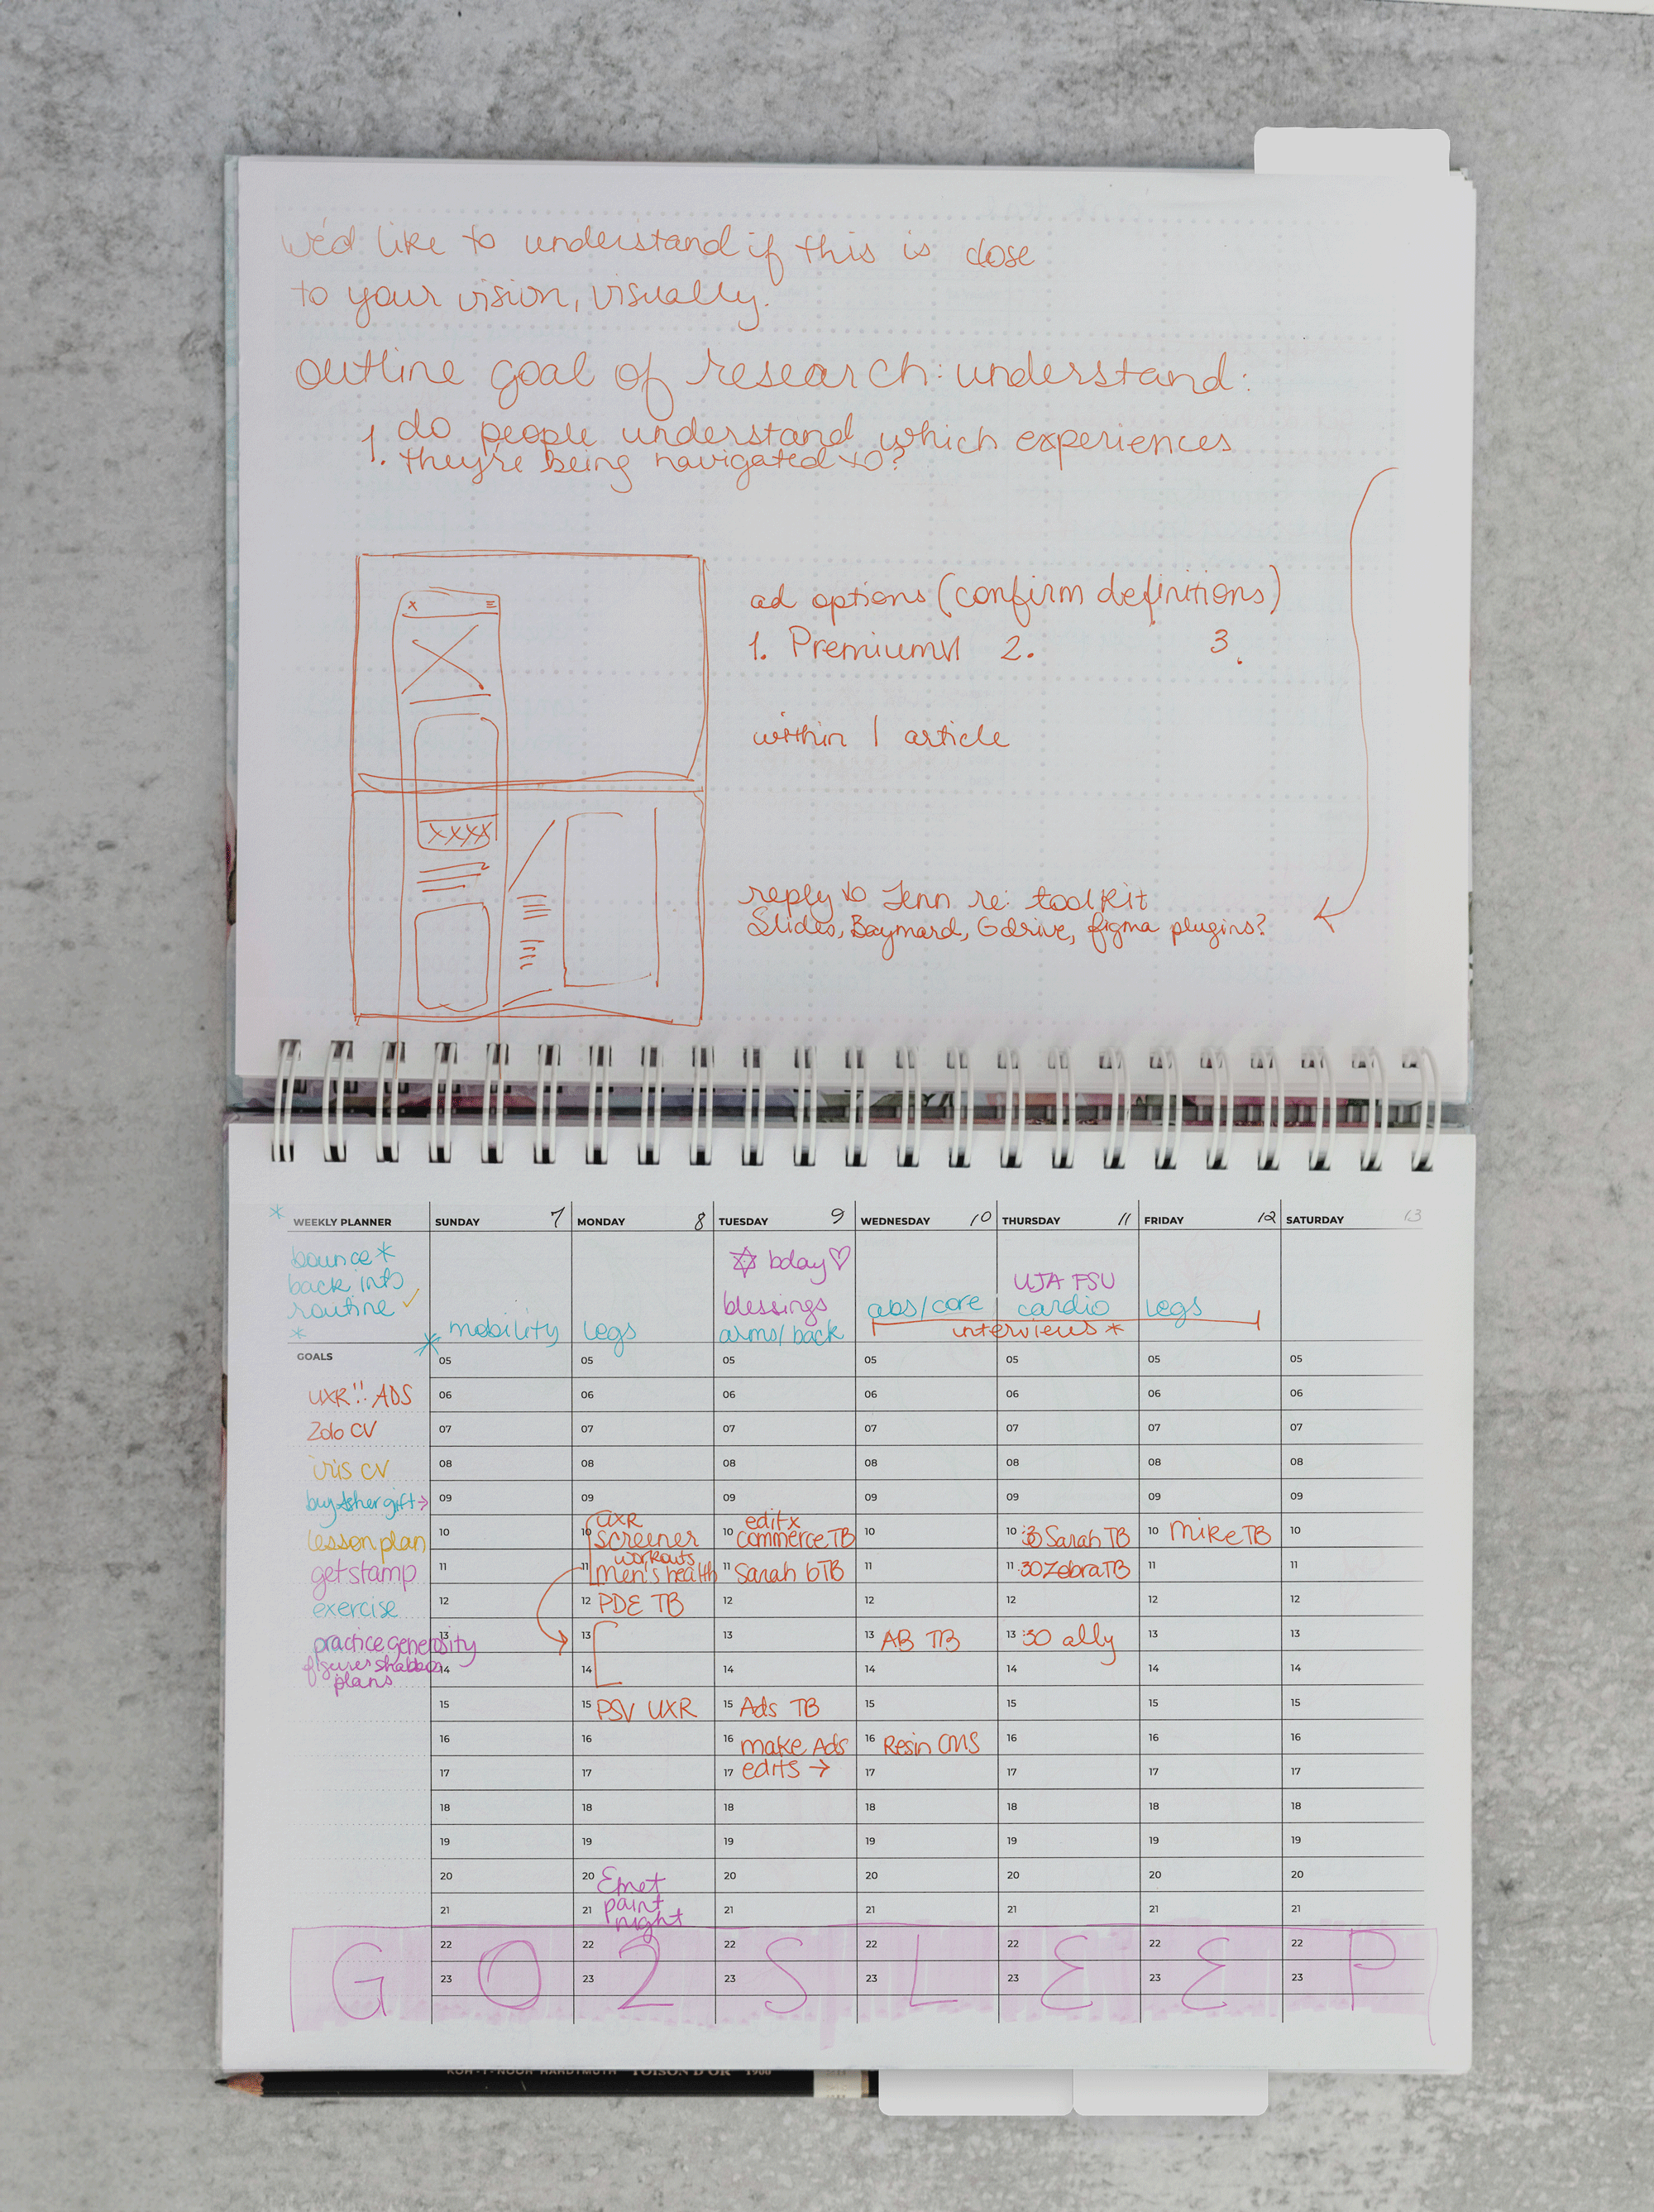 we'd like to understand if this is close
to your vision, visually.
outline goal of research: understand:
1. do people understand which experiences
they're being navigated to?
ad options (confirm definitions)
1. Premium 2. 3.
within 1 article
reply to Jenn re: toolkit
Slides, Baymard, Gdrive, figma plugins?
WEEKLY PLANNER SUNDAY 7 MONDAY 8 TUESDAY 9 WEDNESDAY 10 THURSDAY 11 FRIDAY 12 SATURDAY 13
bounce*
back into
routine ✓
*
mobility
legs
✡ bday ♡
blessings
arms/back
abs/core
UJA FSU
cardio
legs
interviews *
GOALS
UXR!! ADS
Zdo CV
iris CV
buy Asher gift →
lesson plan
get stamp
exercise
practice generosity
figure shabbos
plans
05 05 05 05 05 05 05
06 06 06 06 06 06 06
07 07 07 07 07 07 07
08 08 08 08 08 08 08
09 09 09 09 09 09 09
UXR editx
10 10 screener 10 commerce TB 10 10 :30 Sarah TB 10 Mike TB 10
workouts
11 11 men's health 11 Sarah bTB 11 11 :30 Zebra TB 11 11
12 12 PDE TB 12 12 12 12 12
13 13 13 13 AB TB 13 :30 ally 13 13
14 14 14 14 14 14 14
15 15 PSV UXR 15 Ads TB 15 15 15 15
16 16 16 make Ads 16 Resin CMS 16 16 16
17 17 17 edits → 17 17 17 17
18 18 18 18 18 18 18
19 19 19 19 19 19 19
20 20 Emet 20 20 20 20 20
21 21 paint 21 21 21 21 21
night
22 22 22 22 22 22 22
G O 2 S L E E P
23 23 23 23 23 23 23
KOH-I-NOOR HARDTMUTH TOISON D'OR 1900